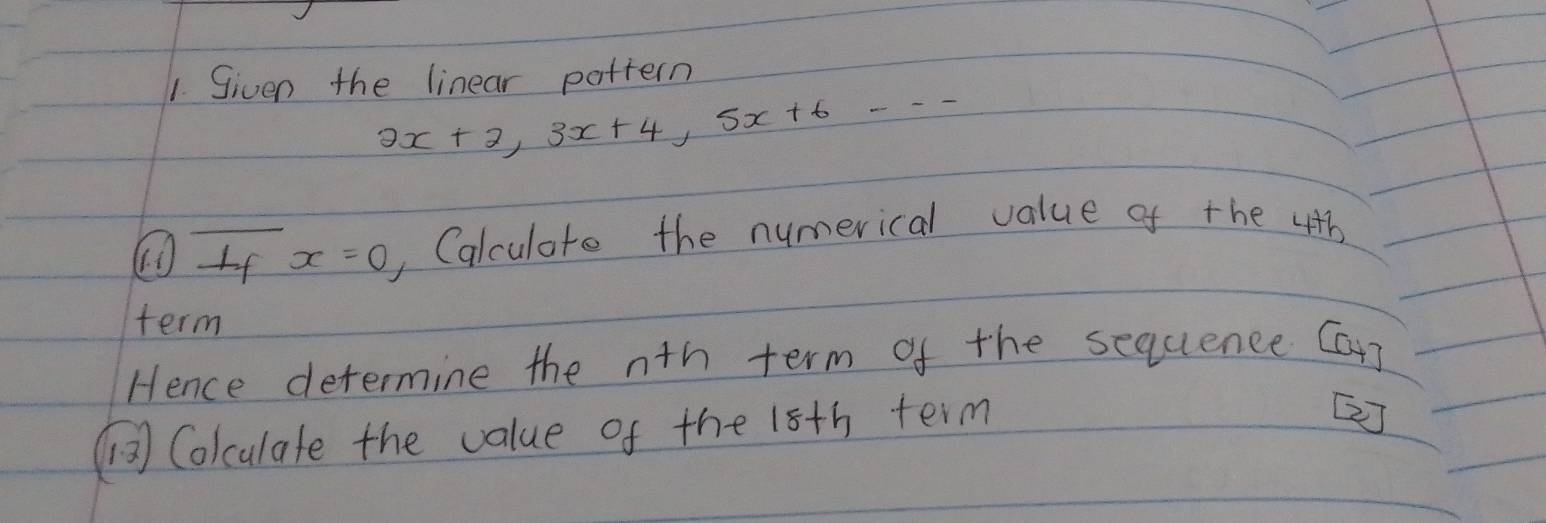 1. Given the linear pattern
2x + 2, 3x + 4, 5x + 6 - - -
(1.1) If x = 0, Calculate the numerical value of the 4th
term
Hence determine the nth term of the sequence [04]
(1.2) Calculate the value of the 18th term [2]